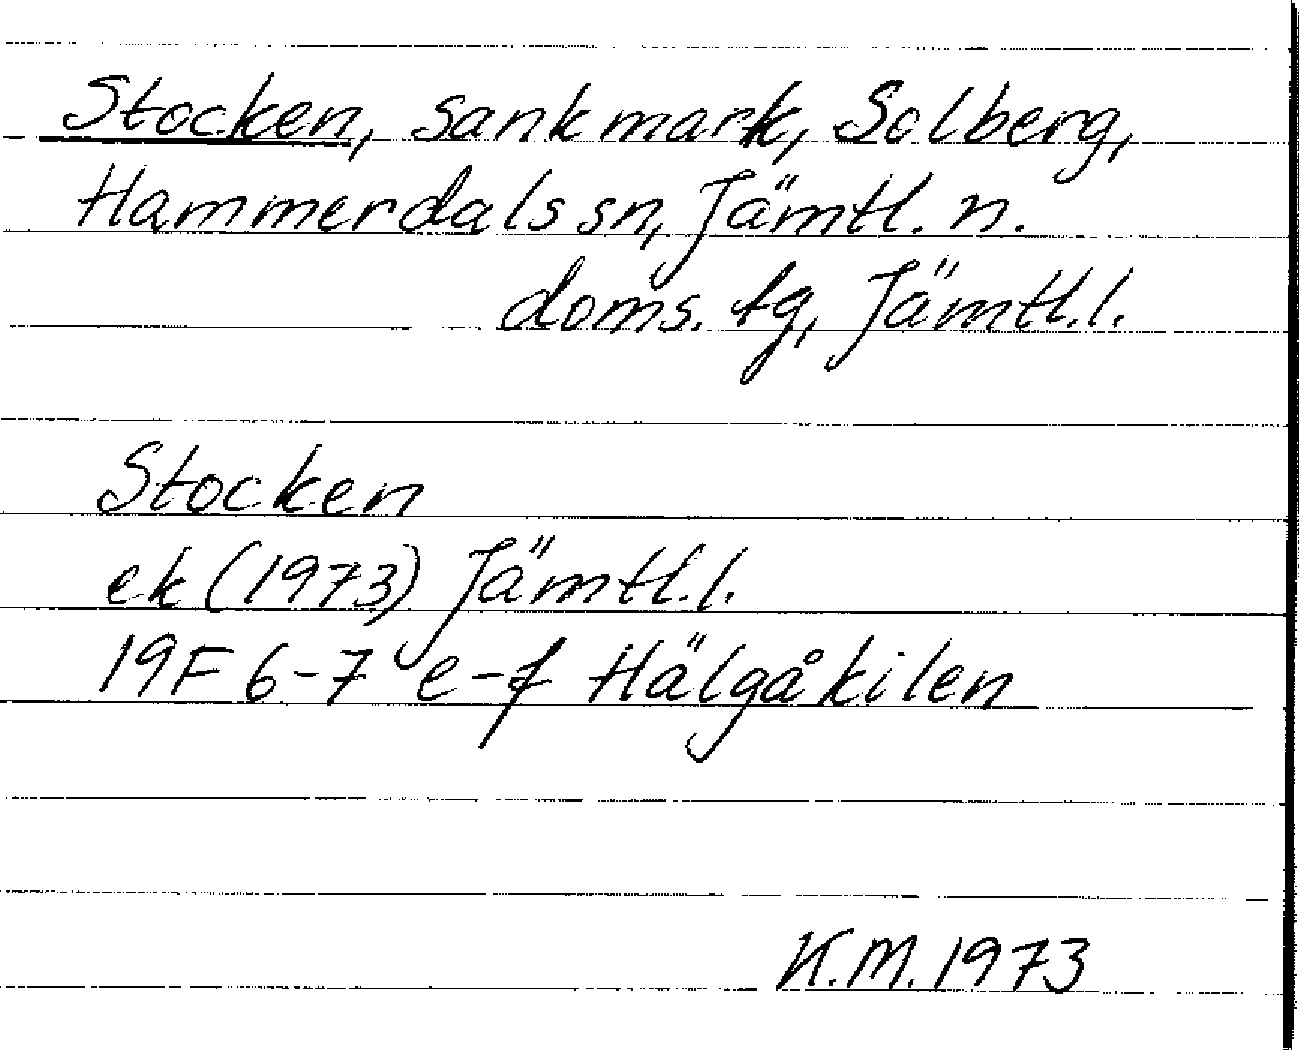 Stocken, sankmark, Solberg,
Hammerdals sn, Jämtl. n.
doms. tg, Jämtl.l.
Stocken
ek (1973) Jämtl.l.
19F 6-7 e-f Hälgåkilen
K.M. 1973